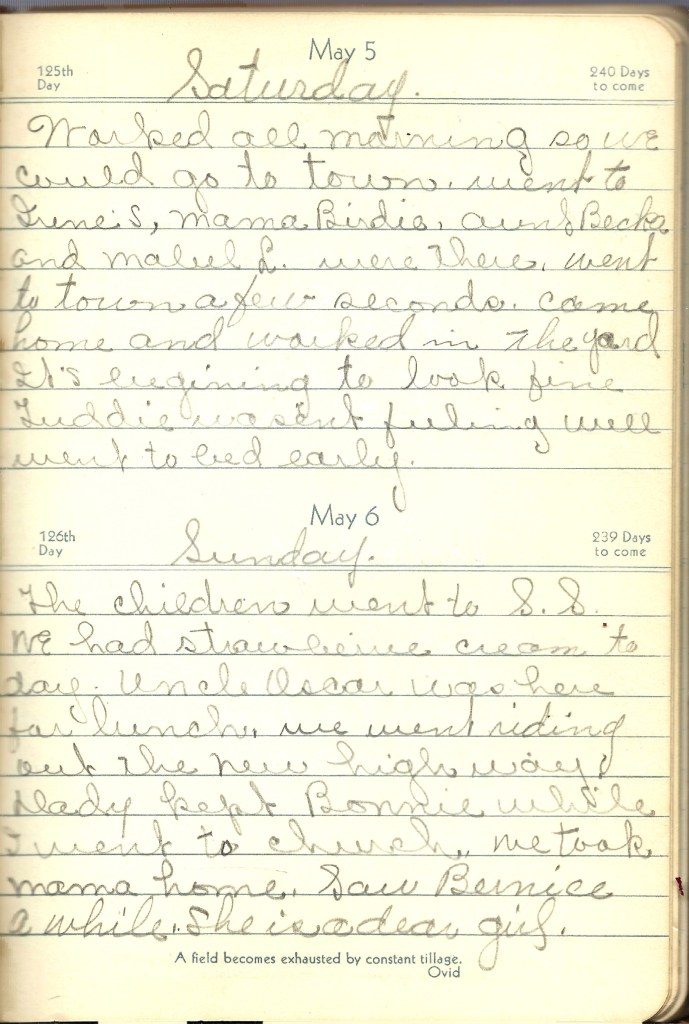 May 5
125th
Day
240 Days
to come
Saturday.
Worked all morning so we
could go to town. went to
Irene's, mama Birdie, aunt Becka
and mabel L. were there. went
to town a few seconds. came
home and worked in the yard
It's begining to look fine
Tuddie wasent feeling well
went to bed early.
May 6
126th
Day
239 Days
to come
Sunday.
The children went to S. S.
We had strawberrie cream to
day. Uncle Oscar was here
for lunch, we went riding
out the new high way,
Dady kept Bonnie while
I went to church, we took
mama home. Saw Bernice
a while. She is a dear girl.
A field becomes exhausted by constant tillage.
Ovid